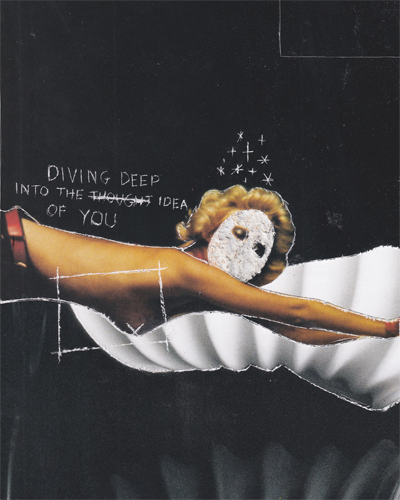 DIVING DEEP
INTO THE THOUGHT IDEA
OF YOU